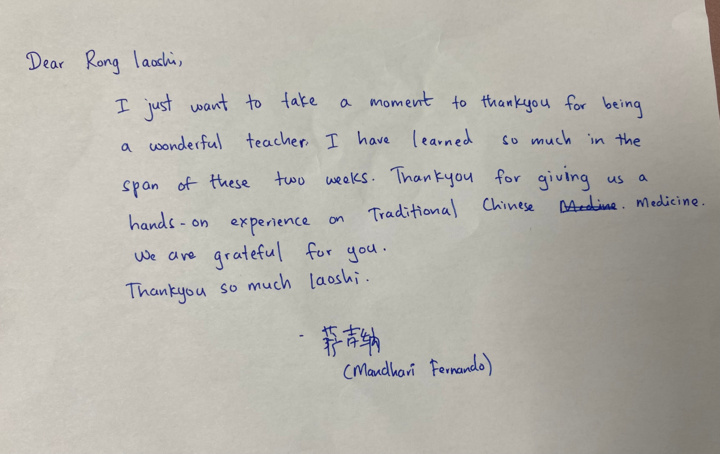 Dear Rong laoshi,
I just want to take a moment to thankyou for being
a wonderful teacher. I have learned so much in the
span of these two weeks. Thankyou for giving us a
hands-on experience on Traditional Chinese Medicine.
We are grateful for you.
Thankyou so much laoshi.
- 青纳
(Mandhari Fernando)